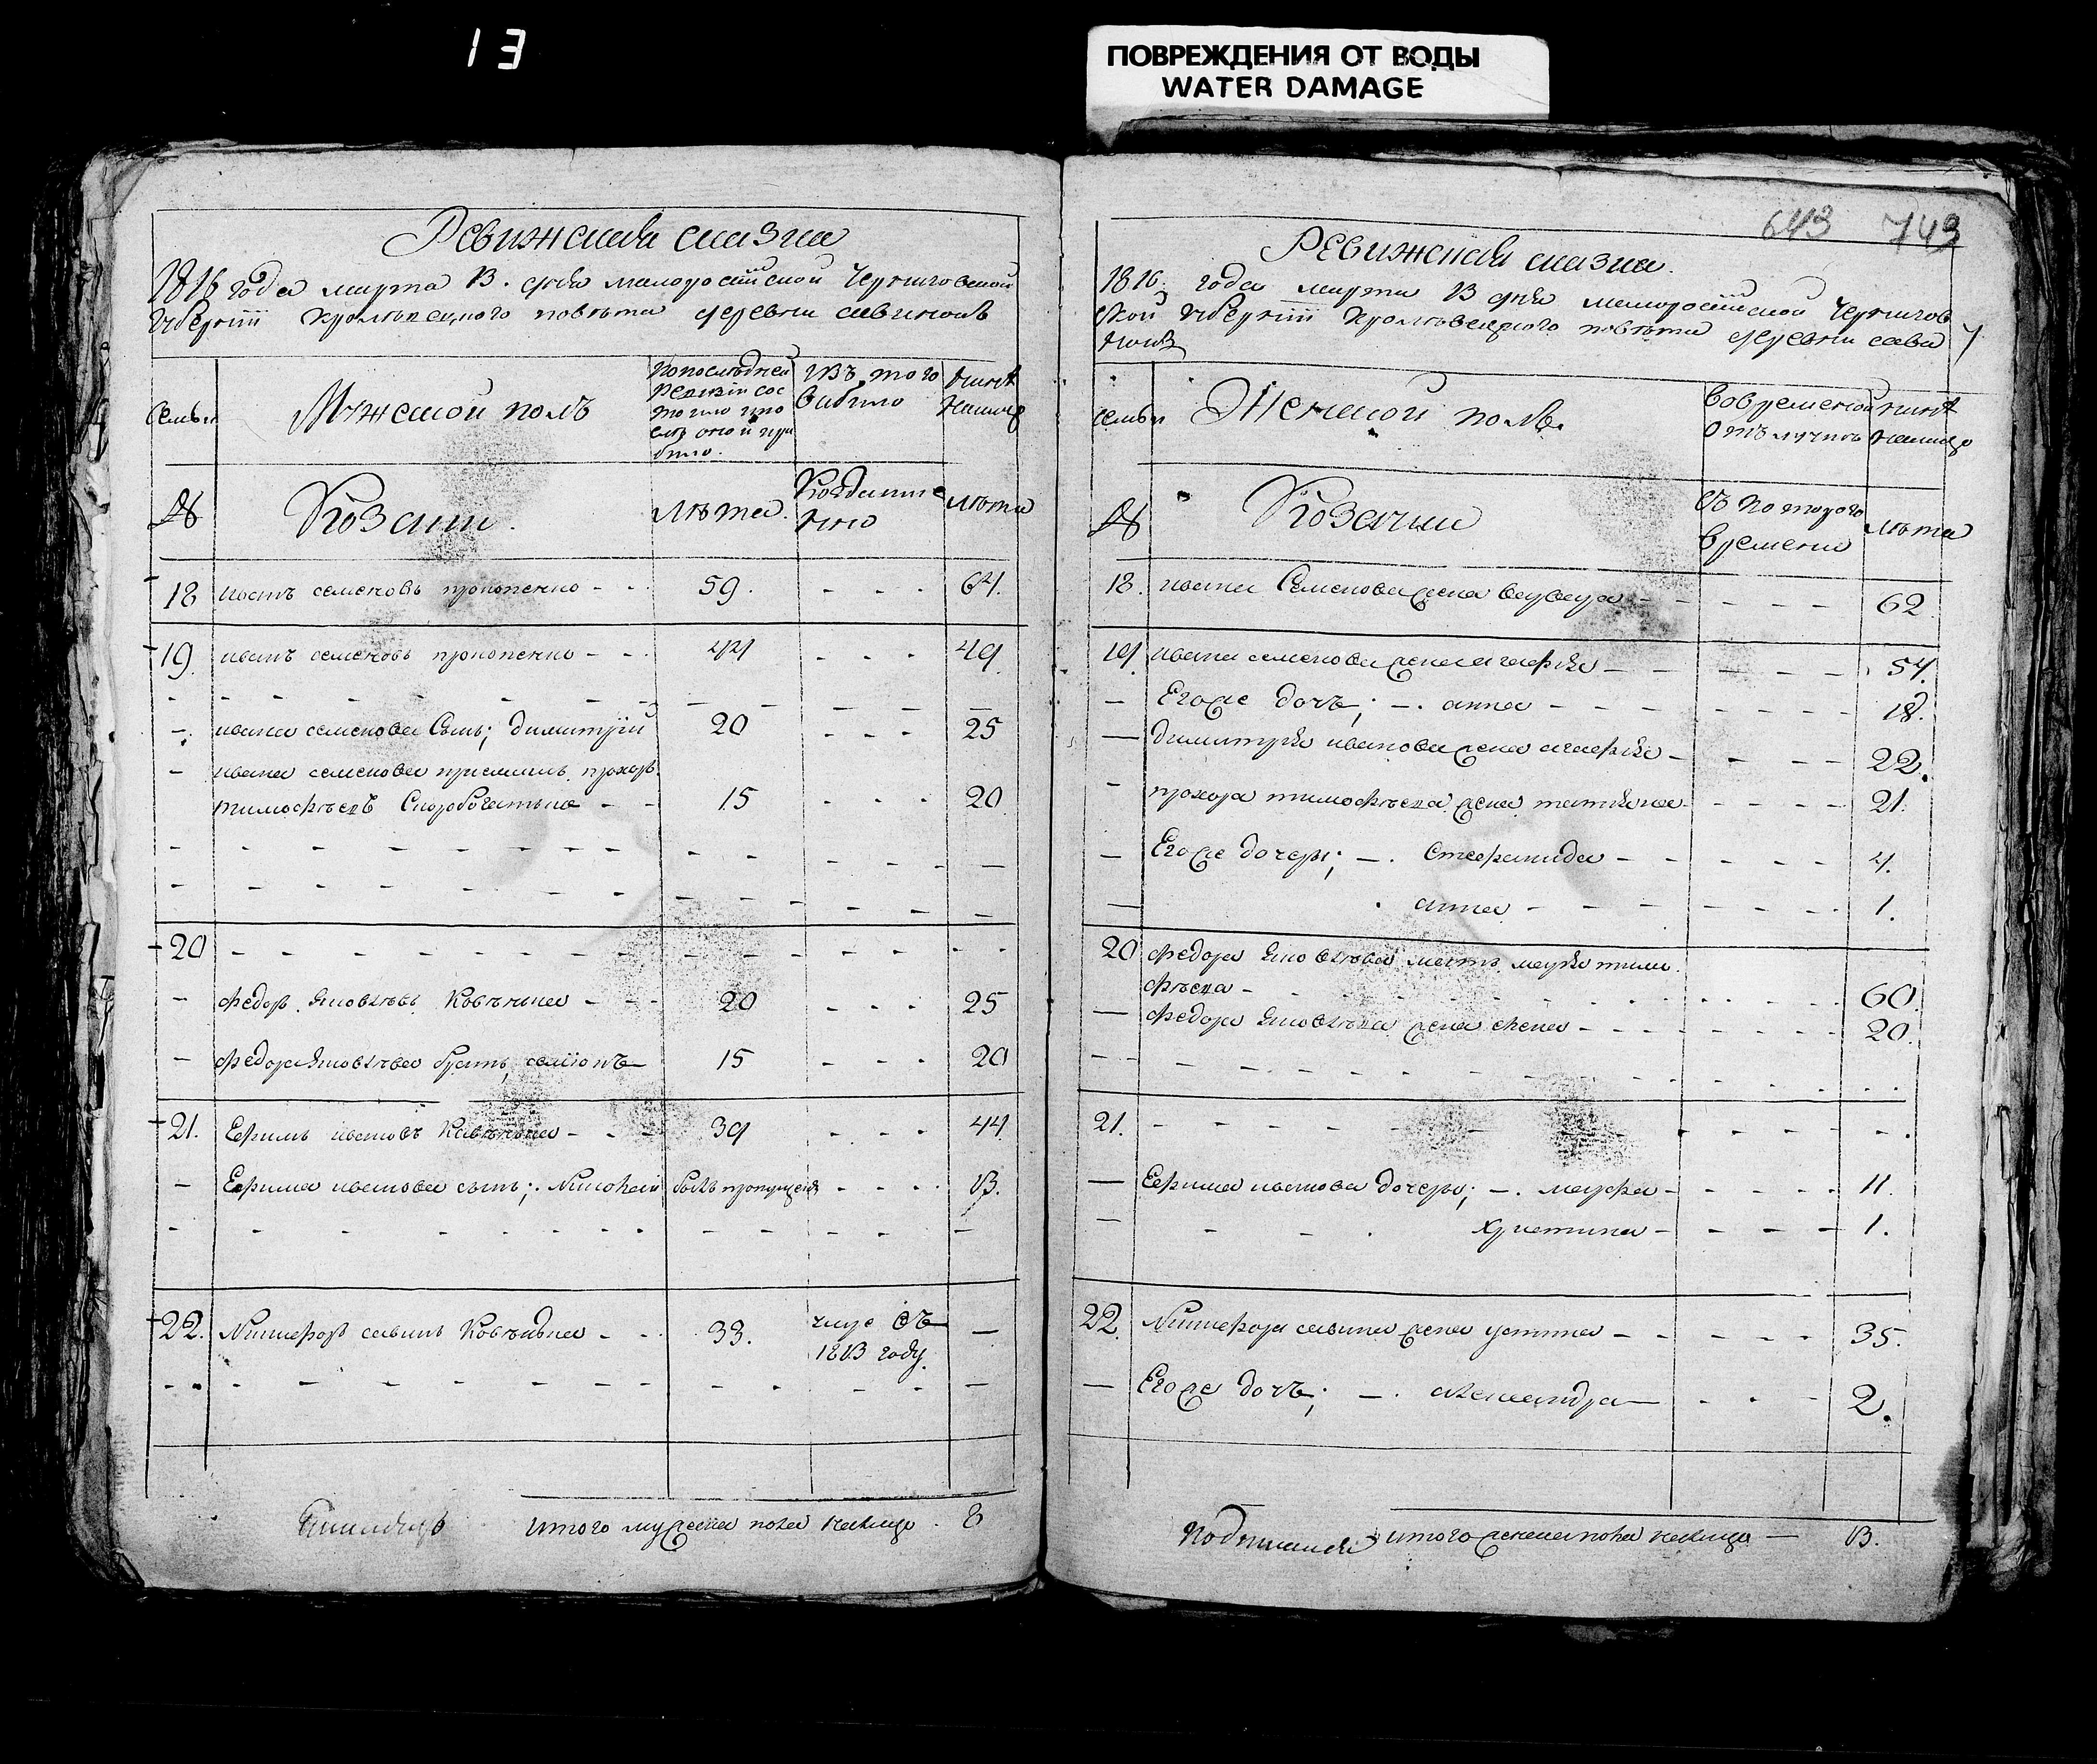 13
ПОВРЕЖДЕНИЯ ОТ ВОДЫ
WATER DAMAGE
Ревижская сказка
1816 года марта 13. дня малоросійской Черниговской
Губерніи Кролевецкого повета деревни Савинокъ
Семьи
Мужеской полъ
По последней
ревизіи сос
тояло и по
сле оной при
было.
Изъ того
выбыло
Ныне
налицо
№
Козаки.
Лета.
Когда имен
но
Лета
18 иванъ семеновъ прокопенко - - 59. - - - 64.
19. иванъ семеновъ прокопенко - - 44 - - - 49.
- ивана семенова Сынъ; димитрій 20 - - - 25
- ивана семенова приемышъ прохоръ
тимофеевъ Скоробогатько - - 15 - - - 20
20 - - - - - - - - - -
- федоръ Яковлевъ Ковтунъ - - 20 - - - 25
- федора Яковлева братъ, семіонъ 15 - - - 20
21. Ефимъ ивановъ - - 39 - - - 44
- Ефима иванова сынъ; Николай былъ пропущенъ - - - 13.
22. Никифоръ савинъ - - 33. умре въ —
1813 году.
итого мужеска пола налицо - 8
643 743
Ревижская сказка.
1816. года марта 13 дня малоросійской Чернигов
ской Губерніи Кролевецкого повета деревни сави
нокъ
семьи
Женской полъ.
Во временной
отлучке
ныне
налицо
№
Козачки
Съ которого
времени
лета
18. ивана Семенова жена варвара - - - - 62
19. ивана семенова жена агафия - - - - 54.
— Его же дочь; —. анна - - - - 18.
— димитрия иванова жена агафия - - - - 22.
- прохора тимофеева жена татияна - - - - 21.
— Его же дочери; —. Стефанида - - - - 4.
— анна - - - - 1.
20 федора Яковлева мать марья тимо
феева - - - - 60.
— федора Яковлева жена елена - - - - 20.
21. - - - - - - - -
— Ефима иванова дочери; —. марфа - - - - 11.
— христина - - - - 1.
22. Никифора савина жена устина - - - - 35.
— Его же дочь; —. александра — - - - 2.
итого женска пола налицо — 13.